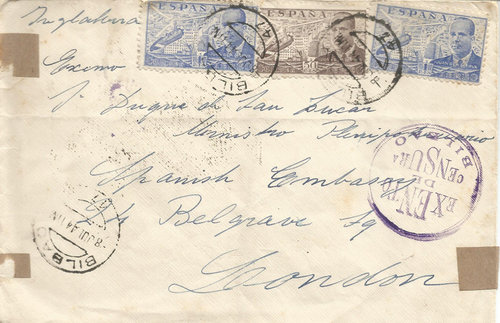 ESPAÑA ESPAÑA ESPAÑA
Inglaterra
BILBAO
Excmo
Sr Duque de San Lucar
Ministro Plenipotenciario
Spanish Embassy
Belgrave Sq
London
BILBAO
8 JUL 44
EXENTO
DE
CENSURA
BILBAO